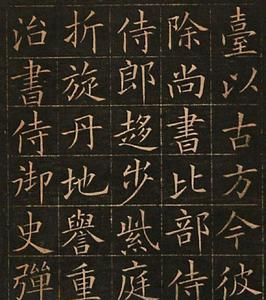 臺以古方今彼
除尚書比部侍
侍郎趍步紫庭
折旋丹地譽重
治書侍御史彈